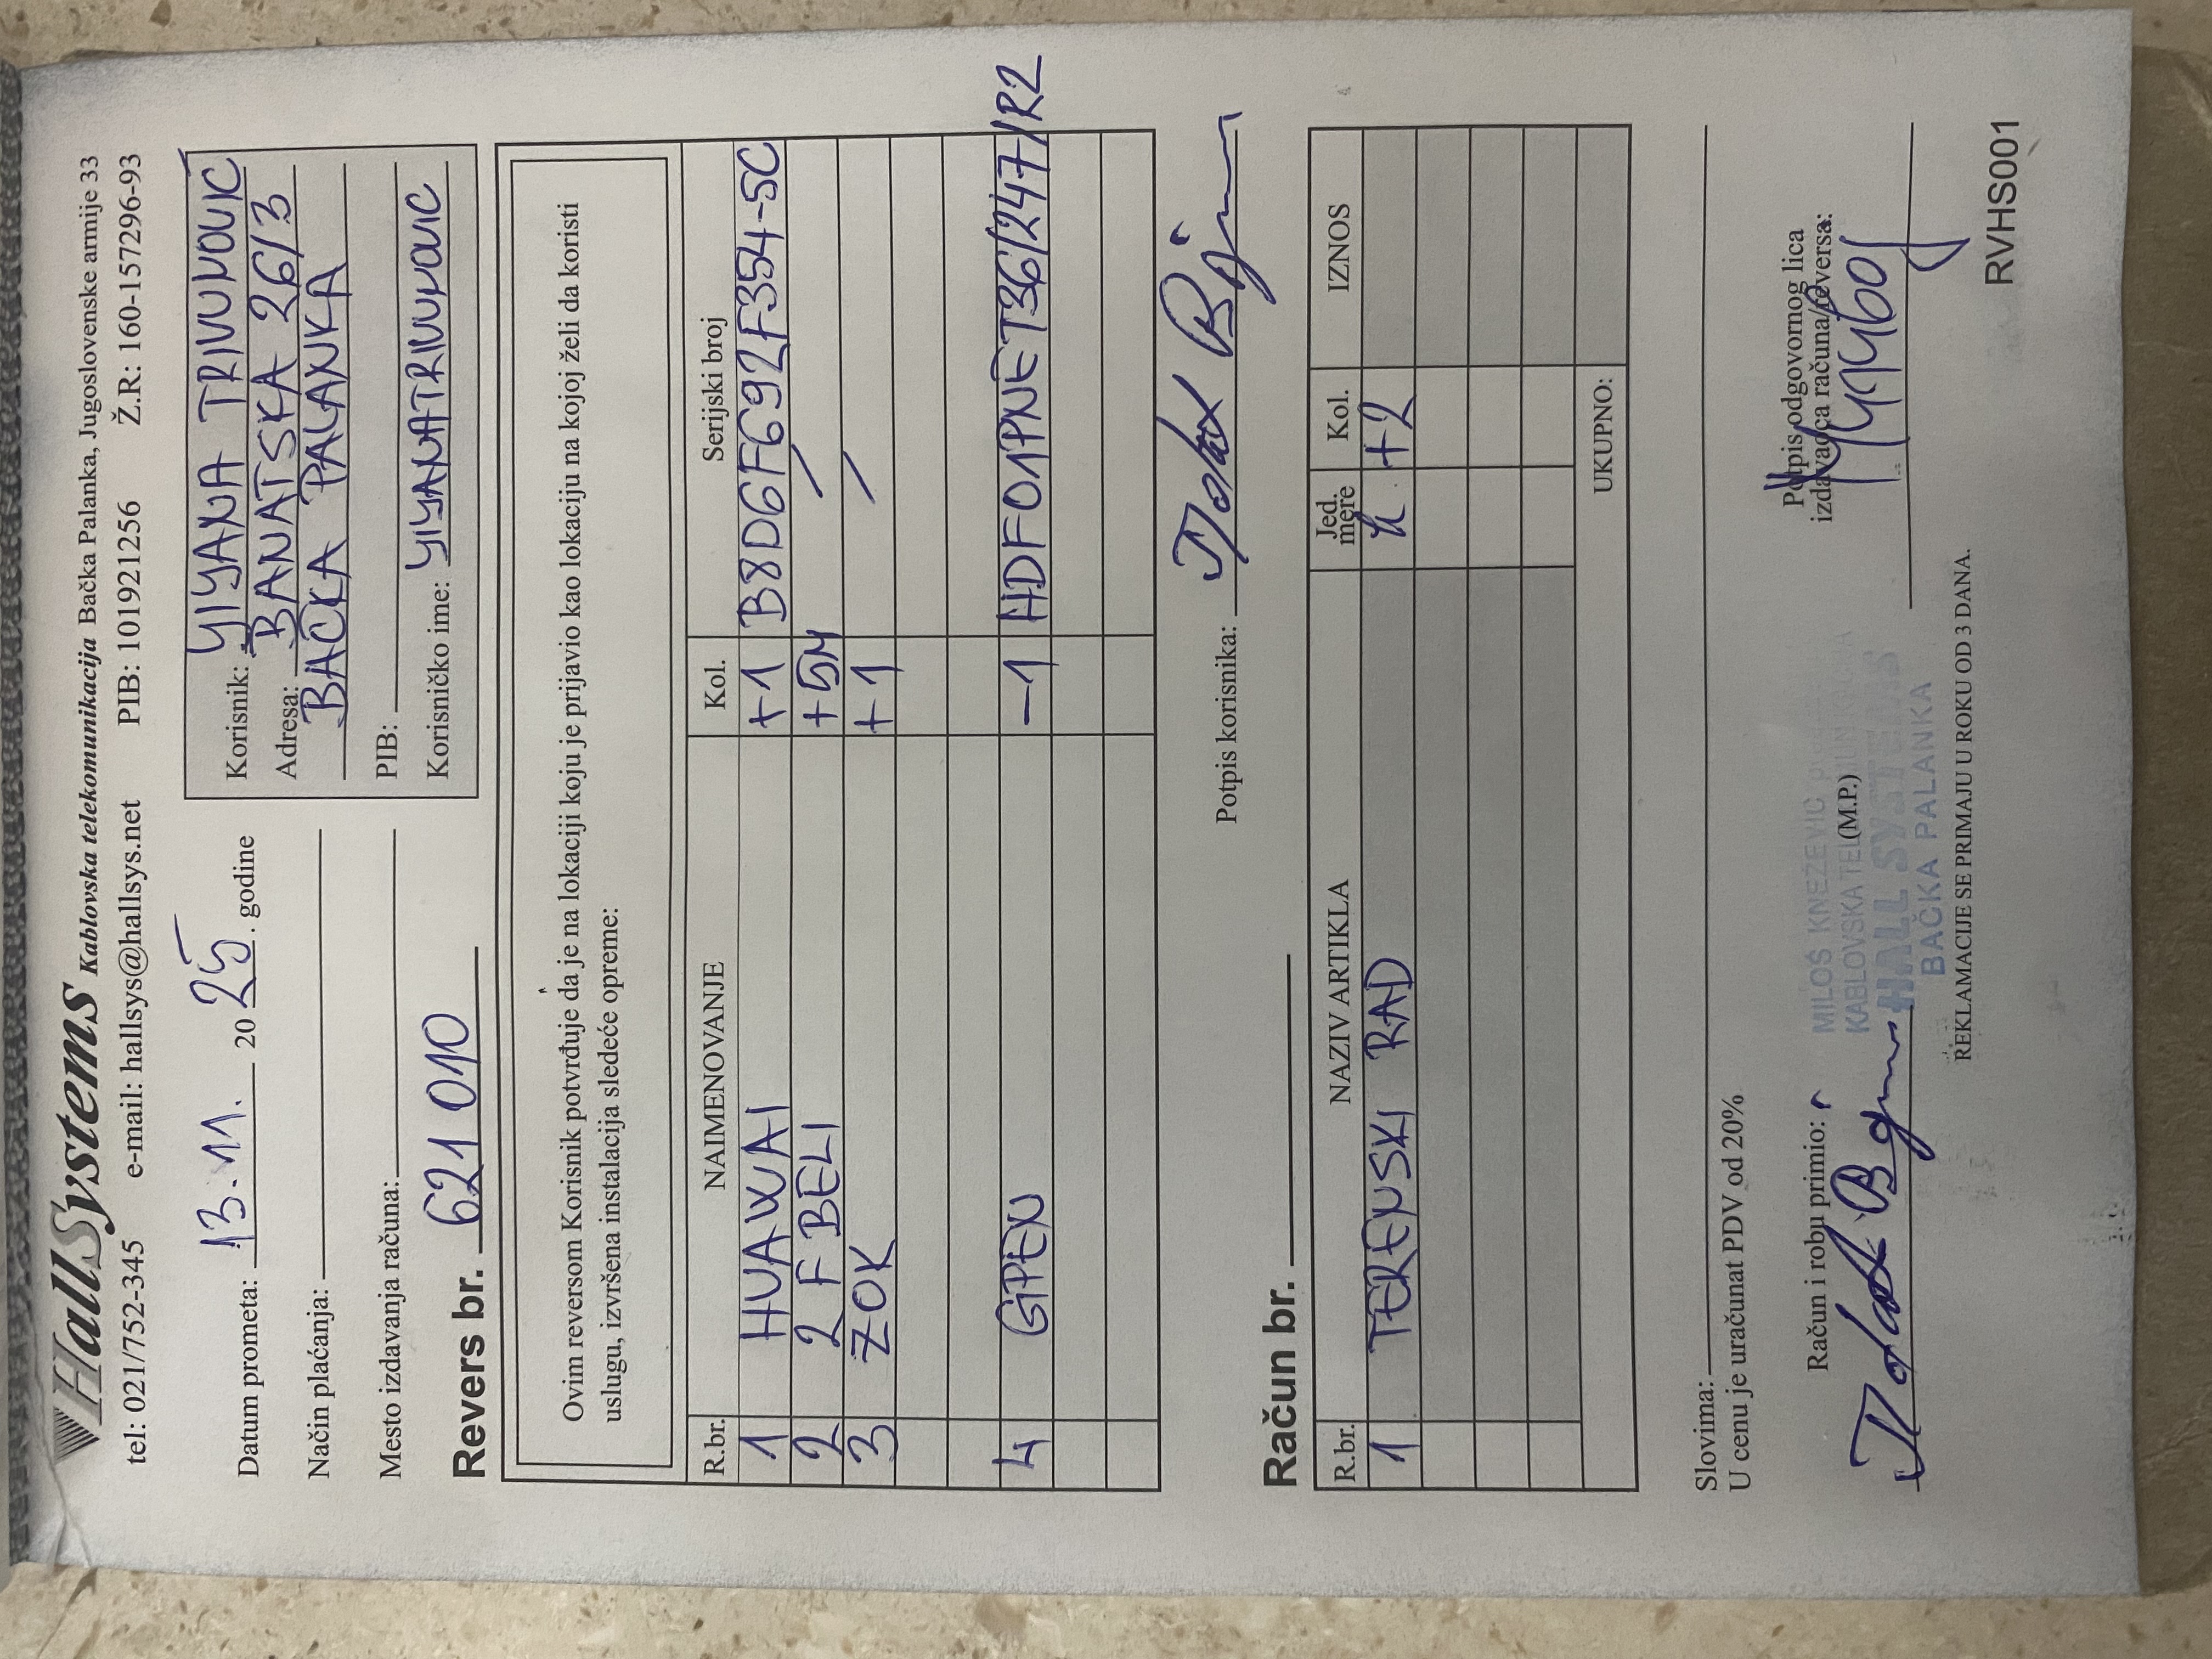 HallSystems Kablovska telekomunikacija Bačka Palanka, Jugoslovenske armije 33
tel: 021/752-345 e-mail: hallsys@hallsys.net PIB: 101921256 Ž.R: 160-157296-93
Datum prometa: 13.11. 20 25. godine
Način plaćanja:
Mesto izdavanja računa:
Revers br. 621 010
Korisnik: YIYANA TRIVUNOVIĆ
Adresa: BANATSKA 26/3
BAČKA PALANKA
PIB:
Korisničko ime: YIYANATRIVUNOVIC
Ovim reversom Korisnik potvrđuje da je na lokaciji koju je prijavio kao lokaciju na kojoj želi da koristi
uslugu, izvršena instalacija sledeće opreme:
R.br. NAIMENOVANJE Kol. Serijski broj
1 HUAWAI +1 B8D6F692F354-5C
2 2 F BELI +5M /
3 ZOK +1 /
4 GPEN -1 HDF01PNET36/247/R2
Potpis korisnika:
Račun br.
R.br. NAZIV ARTIKLA Jed. mere Kol. IZNOS
1 TERENSKI RAD h +2
UKUPNO:
Slovima:
U cenu je uračunat PDV od 20%
Račun i robu primio:
(M.P.)
Potpis odgovornog lica
izdavaoca računa/reversa:
MILOŠ KNEŽEVIĆ
KABLOVSKA
HALL SYSTEMS
BAČKA PALANKA
REKLAMACIJE SE PRIMAJU U ROKU OD 3 DANA.
RVHS001